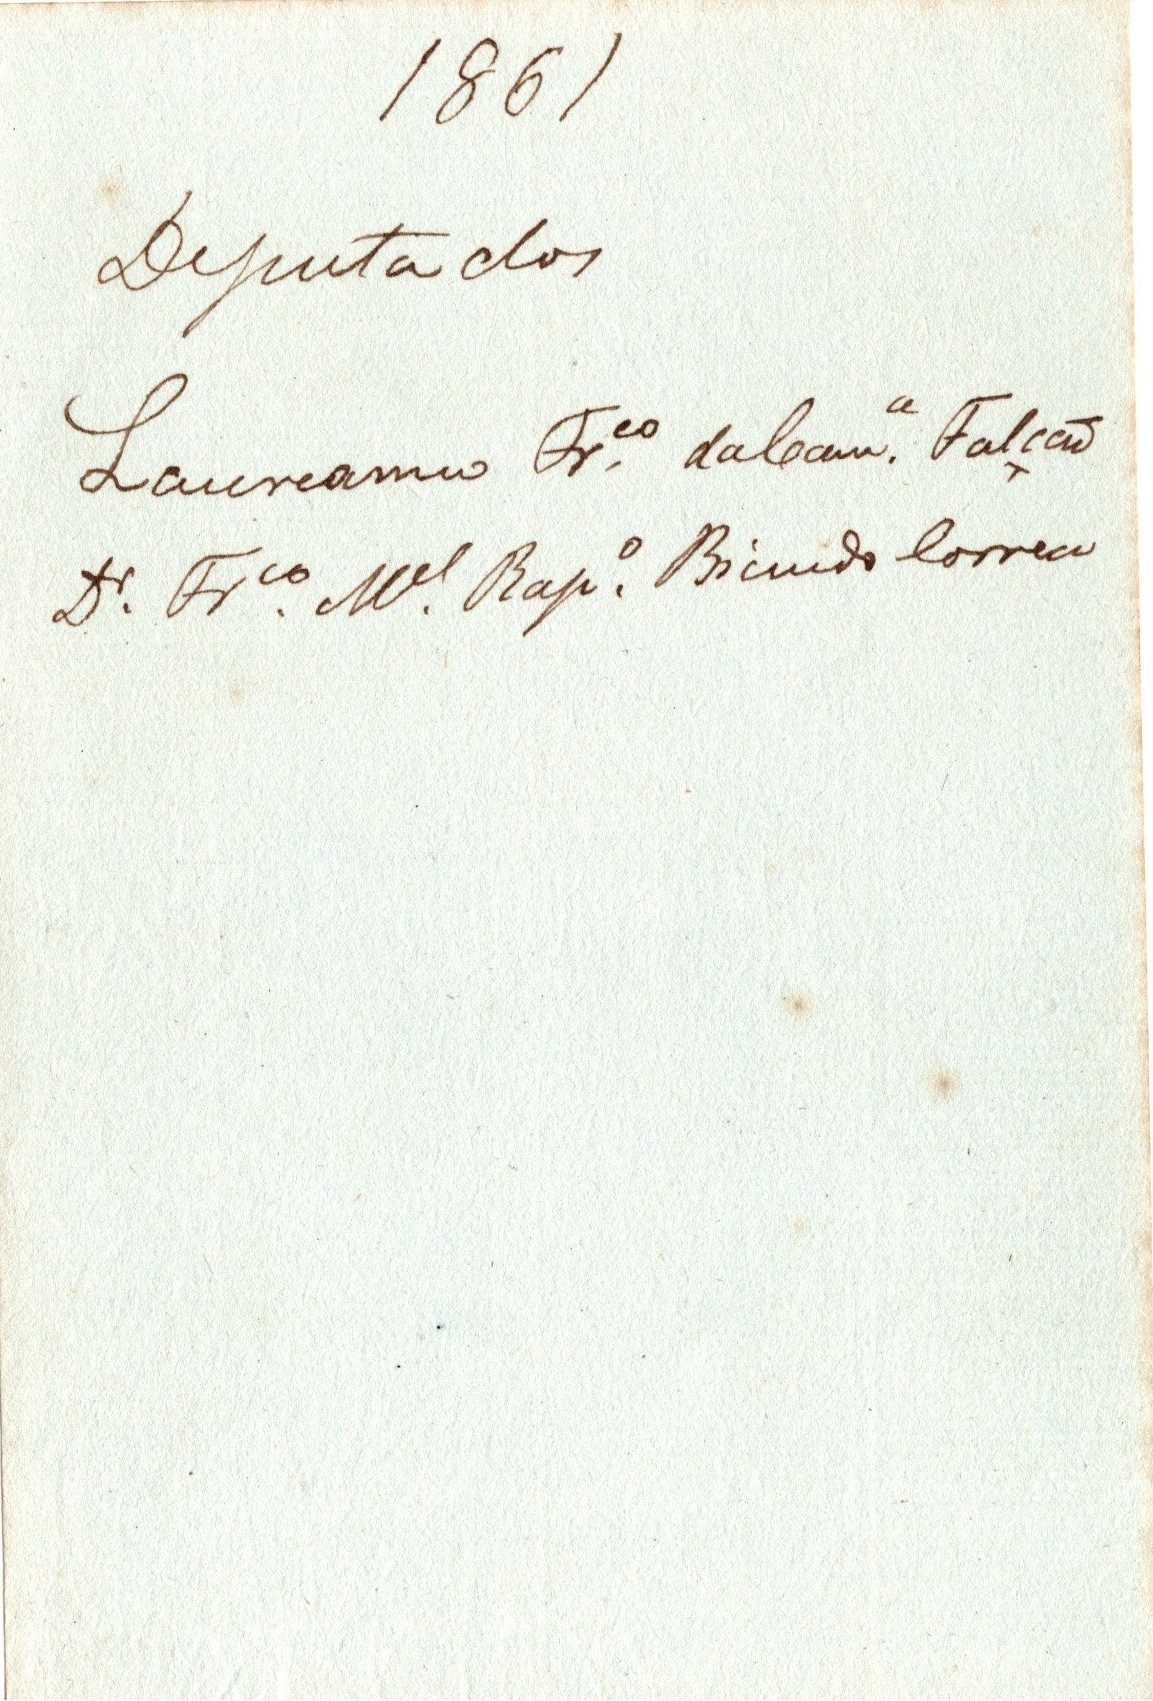 1861
Deputados
Laureanno Fr.co da Cam.a Falcão
Dr. Fr.co M.el Rap.o Bicudo Correa